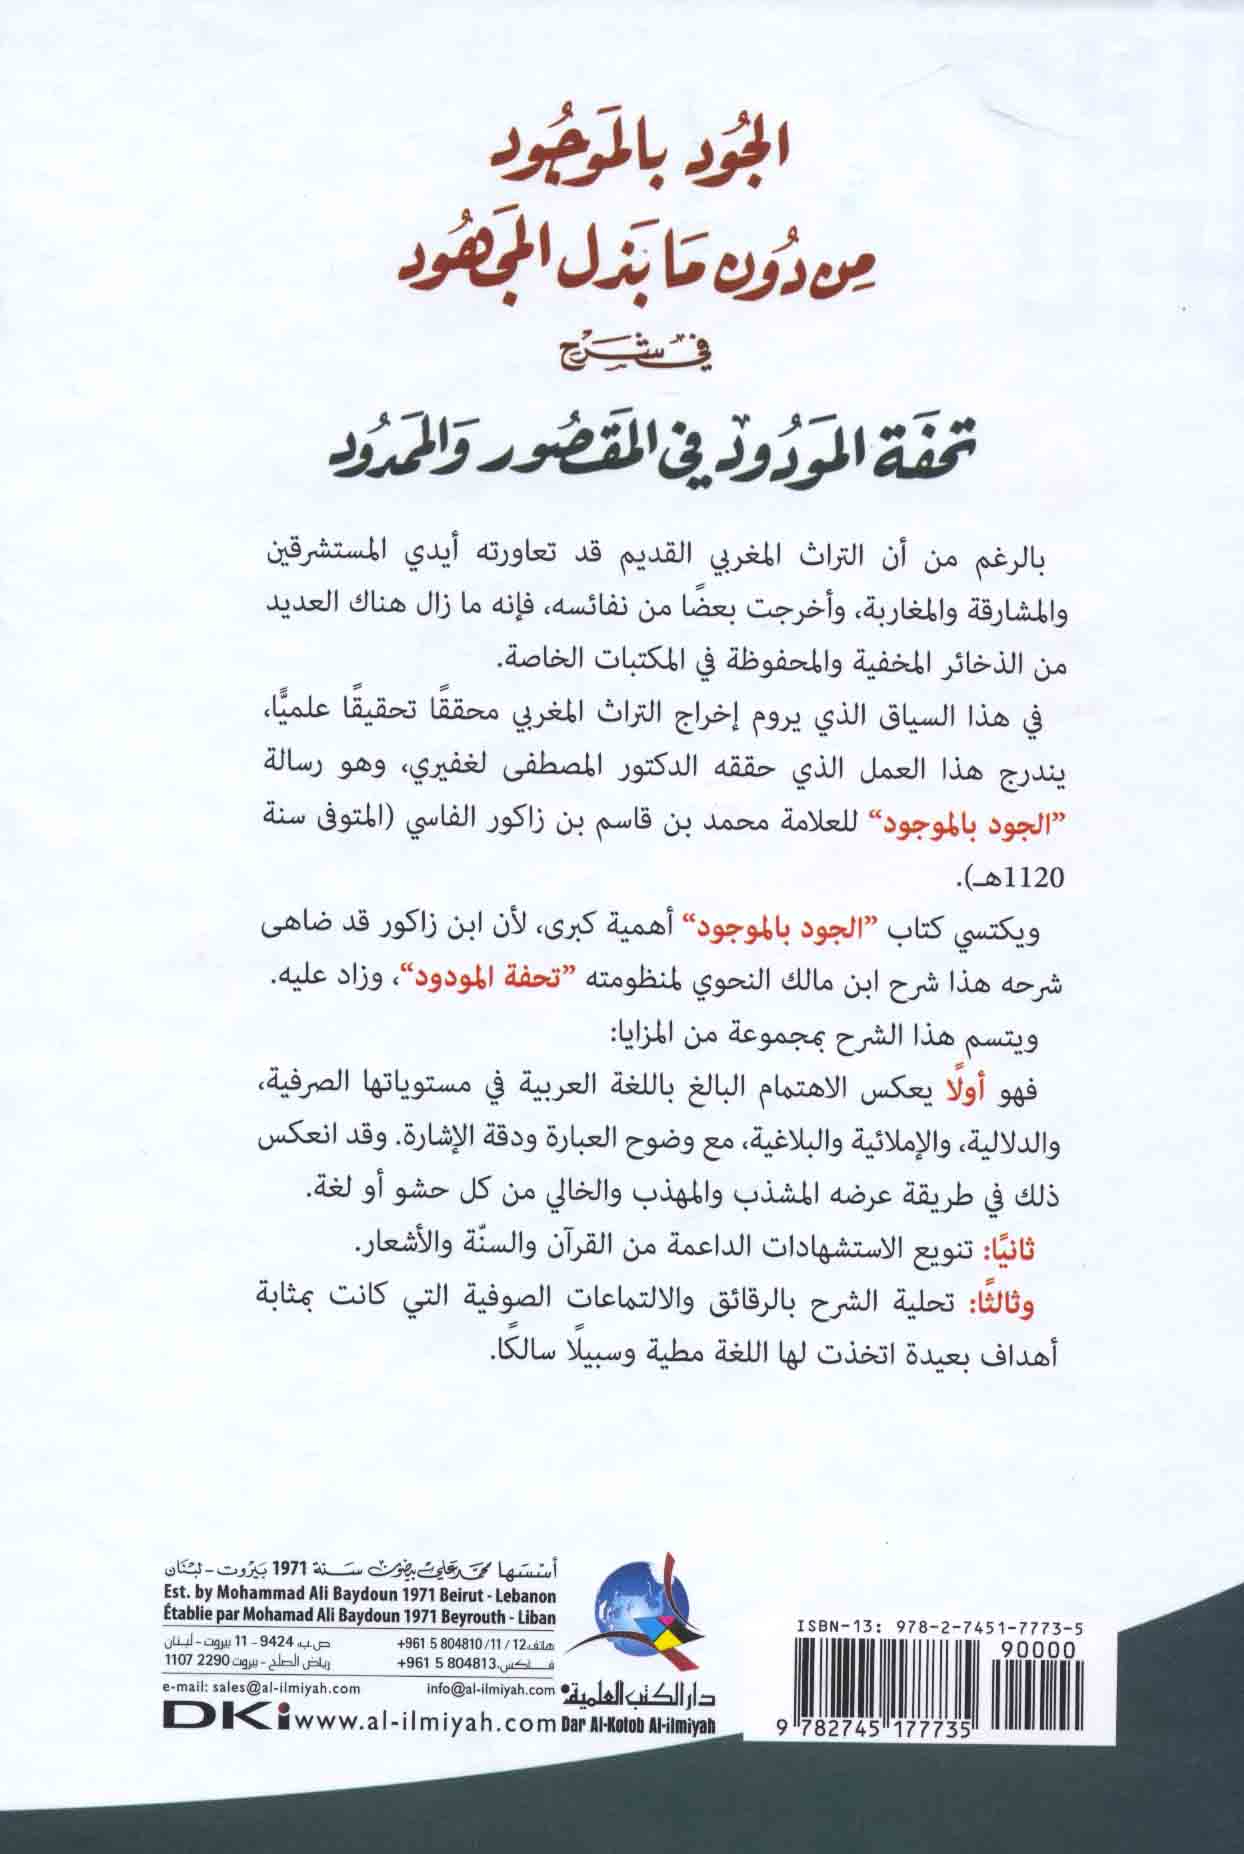 الجُود بالمَوجُود
مِن دُون مَا بَذل المَجهُود
في شَرح
تحفَة المَودُود في المَقصُور وَالممدُود
بالرغم من أن التراث المغربي القديم قد تعاورته أيدي المستشرقين
والمشارقة والمغاربة، وأخرجت بعضًا من نفائسه، فإنه ما زال هناك العديد
من الذخائر المخفية والمحفوظة في المكتبات الخاصة.
في هذا السياق الذي يروم إخراج التراث المغربي محققًا تحقيقًا علميًّا،
يندرج هذا العمل الذي حققه الدكتور المصطفى لغفيري، وهو رسالة
”الجود بالموجود“ للعلامة محمد بن قاسم بن زاكور الفاسي (المتوفى سنة
1120هـ).
ويكتسي كتاب ”الجود بالموجود“ أهمية كبرى، لأن ابن زاكور قد ضاهى
شرحه هذا شرح ابن مالك النحوي لمنظومته ”تحفة المودود“، وزاد عليه.
ويتسم هذا الشرح بمجموعة من المزايا:
فهو أولًا يعكس الاهتمام البالغ باللغة العربية في مستوياتها الصرفية،
والدلالية، والإملائية والبلاغية، مع وضوح العبارة ودقة الإشارة. وقد انعكس
ذلك في طريقة عرضه المشذب والمهذب والخالي من كل حشو أو لغة.
ثانيًا: تنويع الاستشهادات الداعمة من القرآن والسنّة والأشعار.
وثالثًا: تحلية الشرح بالرقائق والالتماعات الصوفية التي كانت بمثابة
أهداف بعيدة اتخذت لها اللغة مطية وسبيلًا سالكًا.
أسّسَها محمد علي بيضون سنة 1971 بيروت - لبنان
Est. by Mohammad Ali Baydoun 1971 Beirut - Lebanon
Établie par Mohamad Ali Baydoun 1971 Beyrouth - Liban
هاتف: +961 5 804810 / 11 / 12
فاكس: +961 5 804813
ص.ب: 9424 - 11 بيروت - لبنان
رياض الصلح - بيروت 2290 1107
e-mail: sales@al-ilmiyah.com
info@al-ilmiyah.com
DKi www.al-ilmiyah.com
دار الكتب العلمية
Dar Al-Kotob Al-ilmiyah
ISBN-13: 978-2-7451-7773-5
90000
9 782745 177735